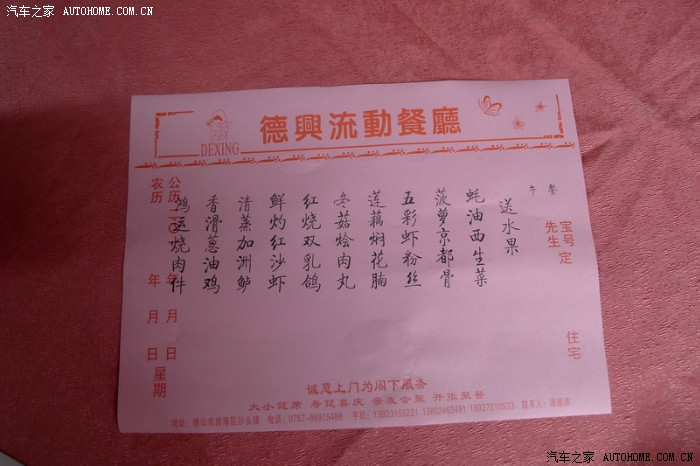 汽车之家 AUTOHOME.COM.CN
DEXING
德興流動餐廳
公历二〇一 年 月 日
农历 年 月 日 星期
鸿运烧肉件
香滑葱油鸡
清蒸加洲鲈
鲜灼红沙虾
红烧双乳鸽
冬菇烩肉丸
莲藕焖花腩
五彩虾粉丝
菠萝京都骨
蚝油西生菜
送水果
午餐
宝号
先生
定
住宅
诚意上门为阁下服务
大小筵席 寿筵喜庆 亲友会聚 开张聚餐
地址：佛山市南海区沙头镇 电话：0757-86915488 手机：13923155221 13802463491 18927210533 联系人：
汽车之家 AUTOHOME.COM.CN